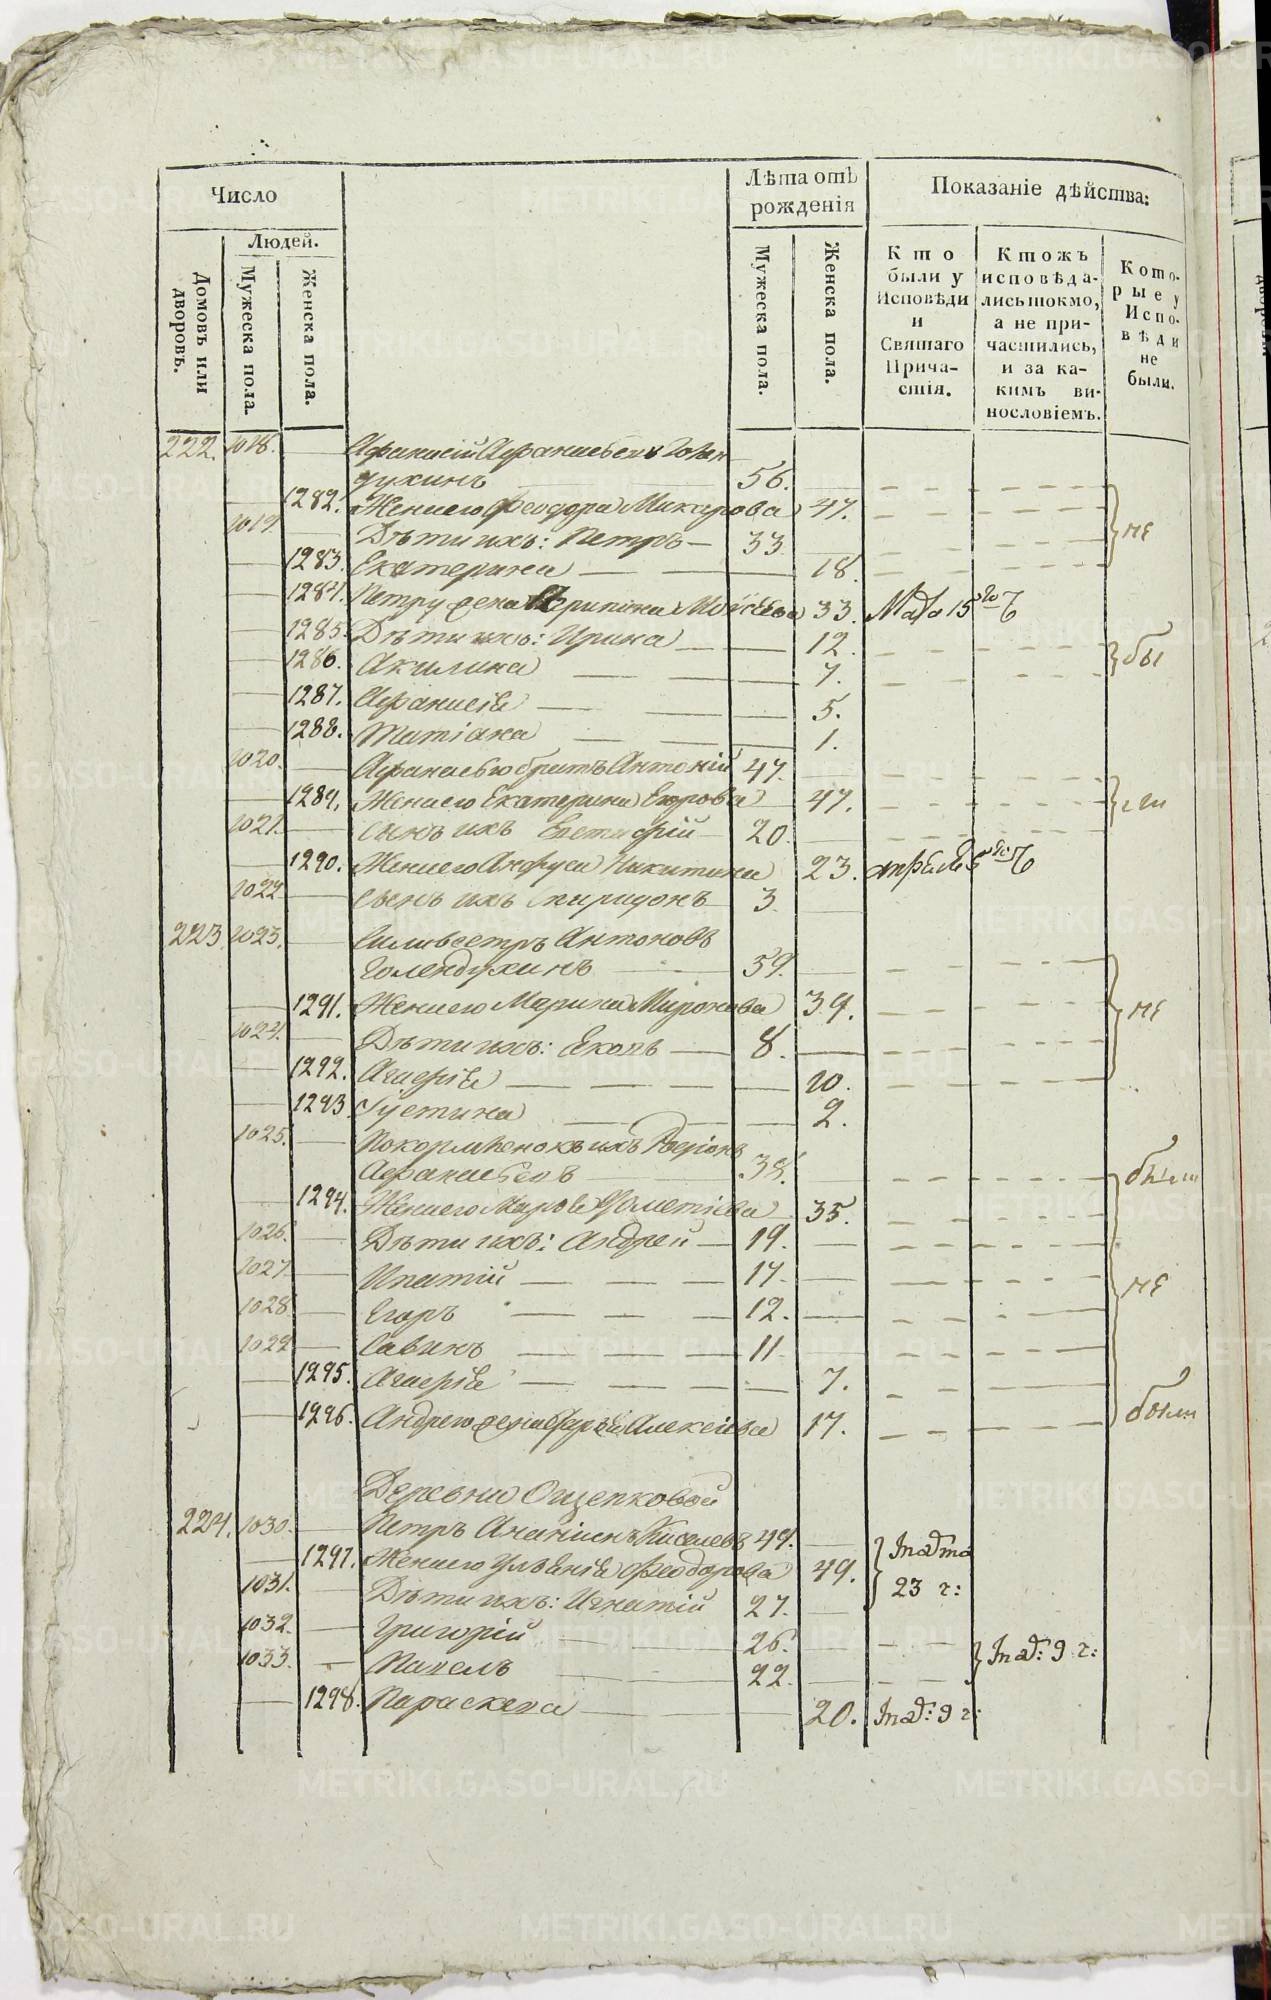 Число
Людей.
Домовъ или дворовъ.
Мужеска пола.
Женска пола.
Лѣта отъ рожденія
Мужеска пола.
Женска пола.
Показаніе дѣйства:
Кто были у Исповѣди и Святаго Причастія.
Ктожъ исповѣдались токмо, а не причастились, и за какимъ винословіемъ.
Которые у Исповѣди не были.
222. 1018. Афанасій Афанасьевъ Голен
духинъ 56.
1282. Жена его Феодора Макарова 47.
1019. Дѣти ихъ: Петръ 33 не
1283. Екатерина 18.
1284. Петру жена Моисеева 33. 15
1285. Дѣти ихъ: Ирина 12. бы
1286. Акилина 7.
1287. Афанасія 5.
1288. Татіана 1.
1020. Афанасью братъ Антоній 47.
1289. Жена его Екатерина Егорова 47. ли
1021. сынъ ихъ Евстафій 20.
1290. Жена его Анфуса Никитина 23.
1022. сынъ ихъ Спиридонъ 3
223 1023. Силивестръ Антоновъ
Голендухинъ 59.
1291. Жена его Марина Миронова 39. не
1024. Дѣти ихъ: 8.
1292. 10.
1293 Устина 2.
1025. ихъ Родіонъ
Афанасьевъ 38. были
1294. Жена его 35.
1026. Дѣти ихъ: Андрей 19.
1027. Ипатій 17. не
1028 Егоръ 12.
1029 Савинъ 11
1295. 7.
1296. Андрею жена Алексіева 17. были
Деревни Ощепковой
224. 1030. Петръ Ананіинъ Киселевъ 49.
1297. Жена его Ульянія Феодорова 49. 23 г:
1031. Дѣти ихъ: Игнатій 27.
1032. Григорій 26.
1033. Павелъ 22. 9 г:
1298. Параскева 20. 9 г:
METRIKI.GASO-URAL.RU